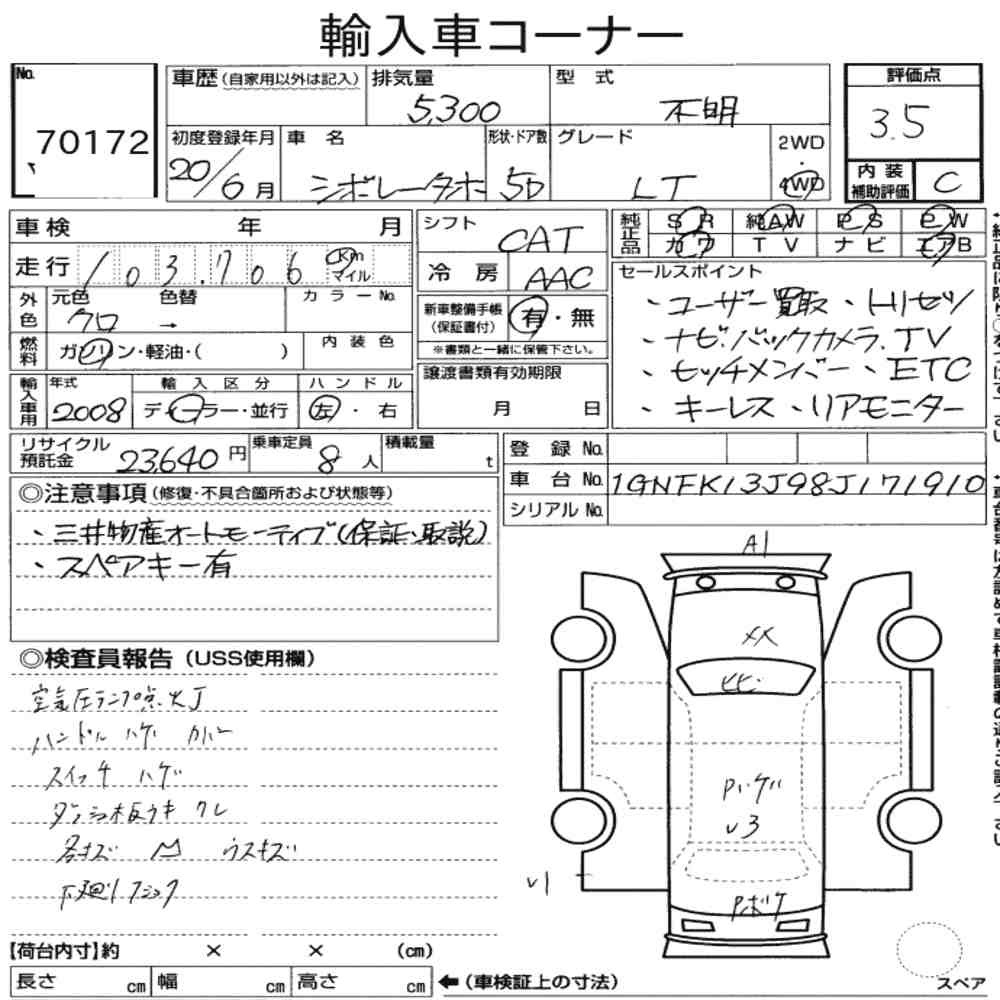 輸入車コーナー
No. 70172
車歴(自家用以外は記入) 排気量 5,300 型式 不明 評価点 3.5
初度登録年月 20/6月 車名 シボレータホ 形状・ドア数 5D グレード LT 2WD・4WD 内装補助評価 C
車検 年 月 シフト CAT 純正品 SR 純AW PS PW
走行 103,706 Km マイル 冷房 AAC カワ TV ナビ エアB
外色 元色 クロ 色替 → カラーNo. 新車整備手帳(保証書付) 有・無 セールスポイント
※書類と一緒に保管下さい。 ・ユーザー買取・HIセツ
燃料 ガソリン・軽油・( ) 内装色 ・ナビ・バックカメラ・TV
譲渡書類有効期限 ・セッチメンバー、ETC
輸入車用 年式 2008 輸入区分 ディーラー・並行 ハンドル 左・右 月 日 ・キーレス・リアモニター
リサイクル預託金 23,640円 乗車定員 8人 積載量 t 登録No.
車台No. 1GNFK13J98J171910
シリアルNo.
◎注意事項(修復・不具合箇所および状態等)
・三井物産オートモーティブ(保証・取説)
・スペアキー有
◎検査員報告(USS使用欄)
空気圧ランプ点灯
ハンドル ハゲ カバー
スイッチ ハゲ
ダッシュ板ウキ ワレ
各キズ ウスキズ
下廻り
A1
メメ
ヒビ
Pハゲ
ν3
ν1
Pボケ
【荷台内寸】約 × × (cm)
長さ cm 幅 cm 高さ cm ←(車検証上の寸法)
スペア